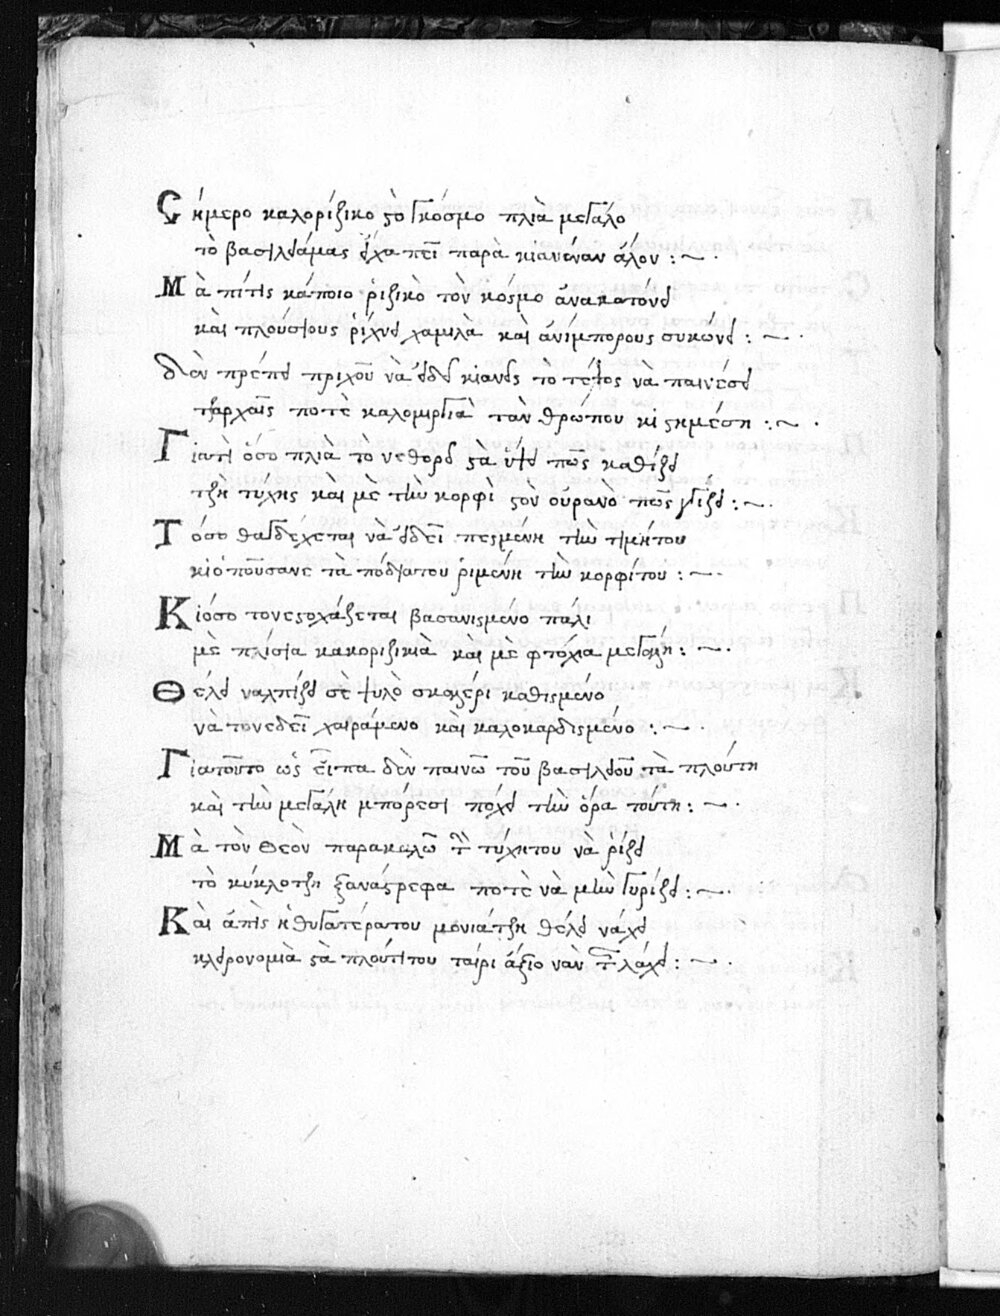 Σήμερο καλορίζικο ςὸ γκόσμο πλιὰ μεγάλο
τὸ βασιλειάμας ἔχα πεῖ παρὰ κιανέναν ἄλον :~ .
Μὰ πίτις κάποιο ῥιζικὸ τὸν κόσμο ἀνακατόνει
καὶ πλούσιους ῥίχνει χαμιλὰ καὶ ἀνίμπορους συκώνει : ~ .
Δὲν πρέπει πριχοῦ νὰ ἐδεῖ κιανεὶς το τέλος νὰ παινέσει
τσαρχαῖς ποτὲ καλομιργιὰ τἀνθρώπου κι ςημέση : ~ .
Γιατὶ ὅσο πλιὰ τὸ νεθορεῖ ςὰ ὕψει πῶς καθίζει
τζη τύχης καὶ μὲ τὴν κορφὶ ςον οὐρανὸ πῶς γγίζει : ~ .
Τόσο θαγδέχεται νὰ ἐδεῖ πεσμένη τὴν τιμήτου
κιὁποῦσανε τὰ πόδιατου ῥιμένη τὴν κορφίτου : ~ .
Κιόσο τονεςοχάζεται βασανισμένο πάλι
μὲ πλίσια κακοριζικιὰ καὶ μὲ φτοχια μεγάλη : ~ .
Θέλει ναλπίζει σὲ ψυλὸ σκαλέρι καθισμενο
νὰ τονεδεῖ χαιράμενο καὶ καλοκαρδισμένο : ~ .
Γιατοῦτο ὡς εἶπα δὲν παινῶ τοῦ βασιλειοῦ τὰ πλούτη
καὶ τὴν μεγάλη μπόρεσι πὄχει τὴν ὅρα τούτη : ~ .
Μὰ τὸν Θεὸν παρακαλῶ τῆ τύχητου να ῥίξει
τὸ κύκλοτζη ξανάςρεφα ποτὲ νὰ μὴν γυρίξει : ~ .
Καὶ ἀπὶς ἡθυγατέρατου μονιάτζη θέλει νάχει
κλερονομιὰ ςὰ πλούτιτου ταίρι ἄξιο νὰν τῆ λάχει : ~ .